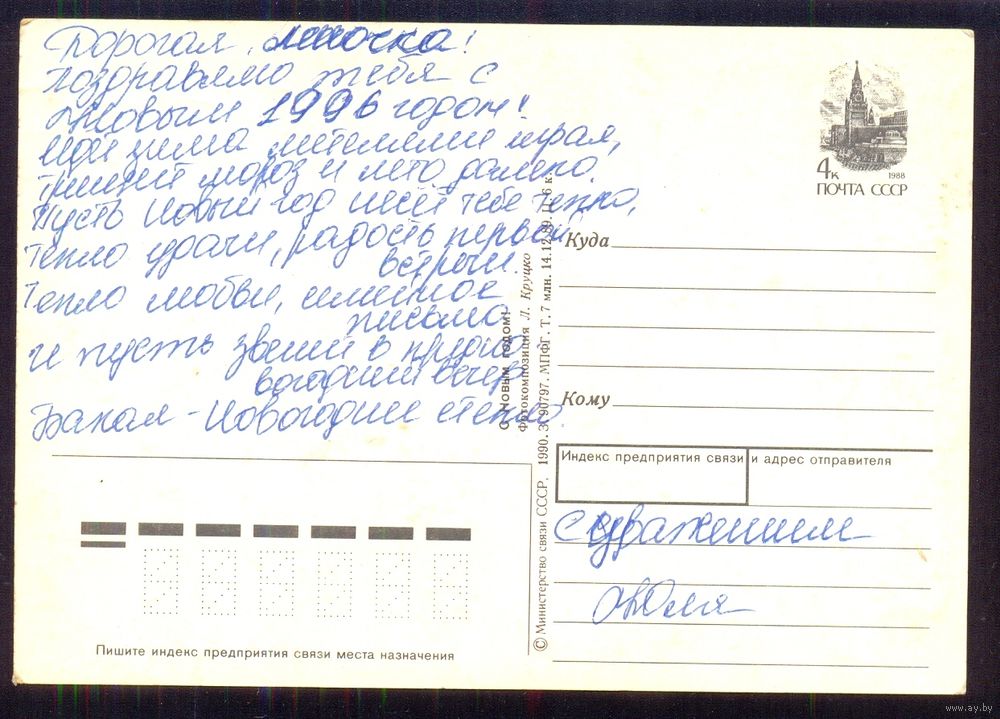 Дорогая Леночка!
Поздравляю тебя с
Новым 1996 годом!
Идёт зима метелями играя,
Трещит мороз и лето далеко.
Пусть Новый год несёт тебе тепло,
Тепло удачи, радость первой
встречи.
Тепло любви, семейное
письмо
И пусть звенит в кругу
вечер
Бокал - Новогодний
4к 1988
ПОЧТА СССР
Куда
Кому
Индекс предприятия связи и адрес отправителя
с уважением
Юля
С Новым годом!
Фотокомпозиция Л. Круцко
© Министерство связи СССР. 1990. З. 790797. МПФГ. Т. 7 млн. 14.12.89. Ц. 6 к.
Пишите индекс предприятия связи места назначения
www.ay.by